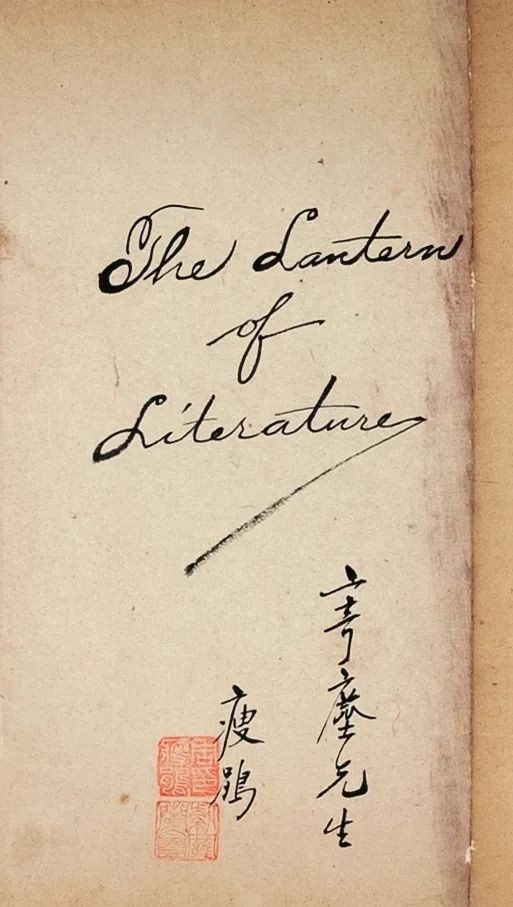 The Lantern
of
Literature
寄塵先生
瘦鵑